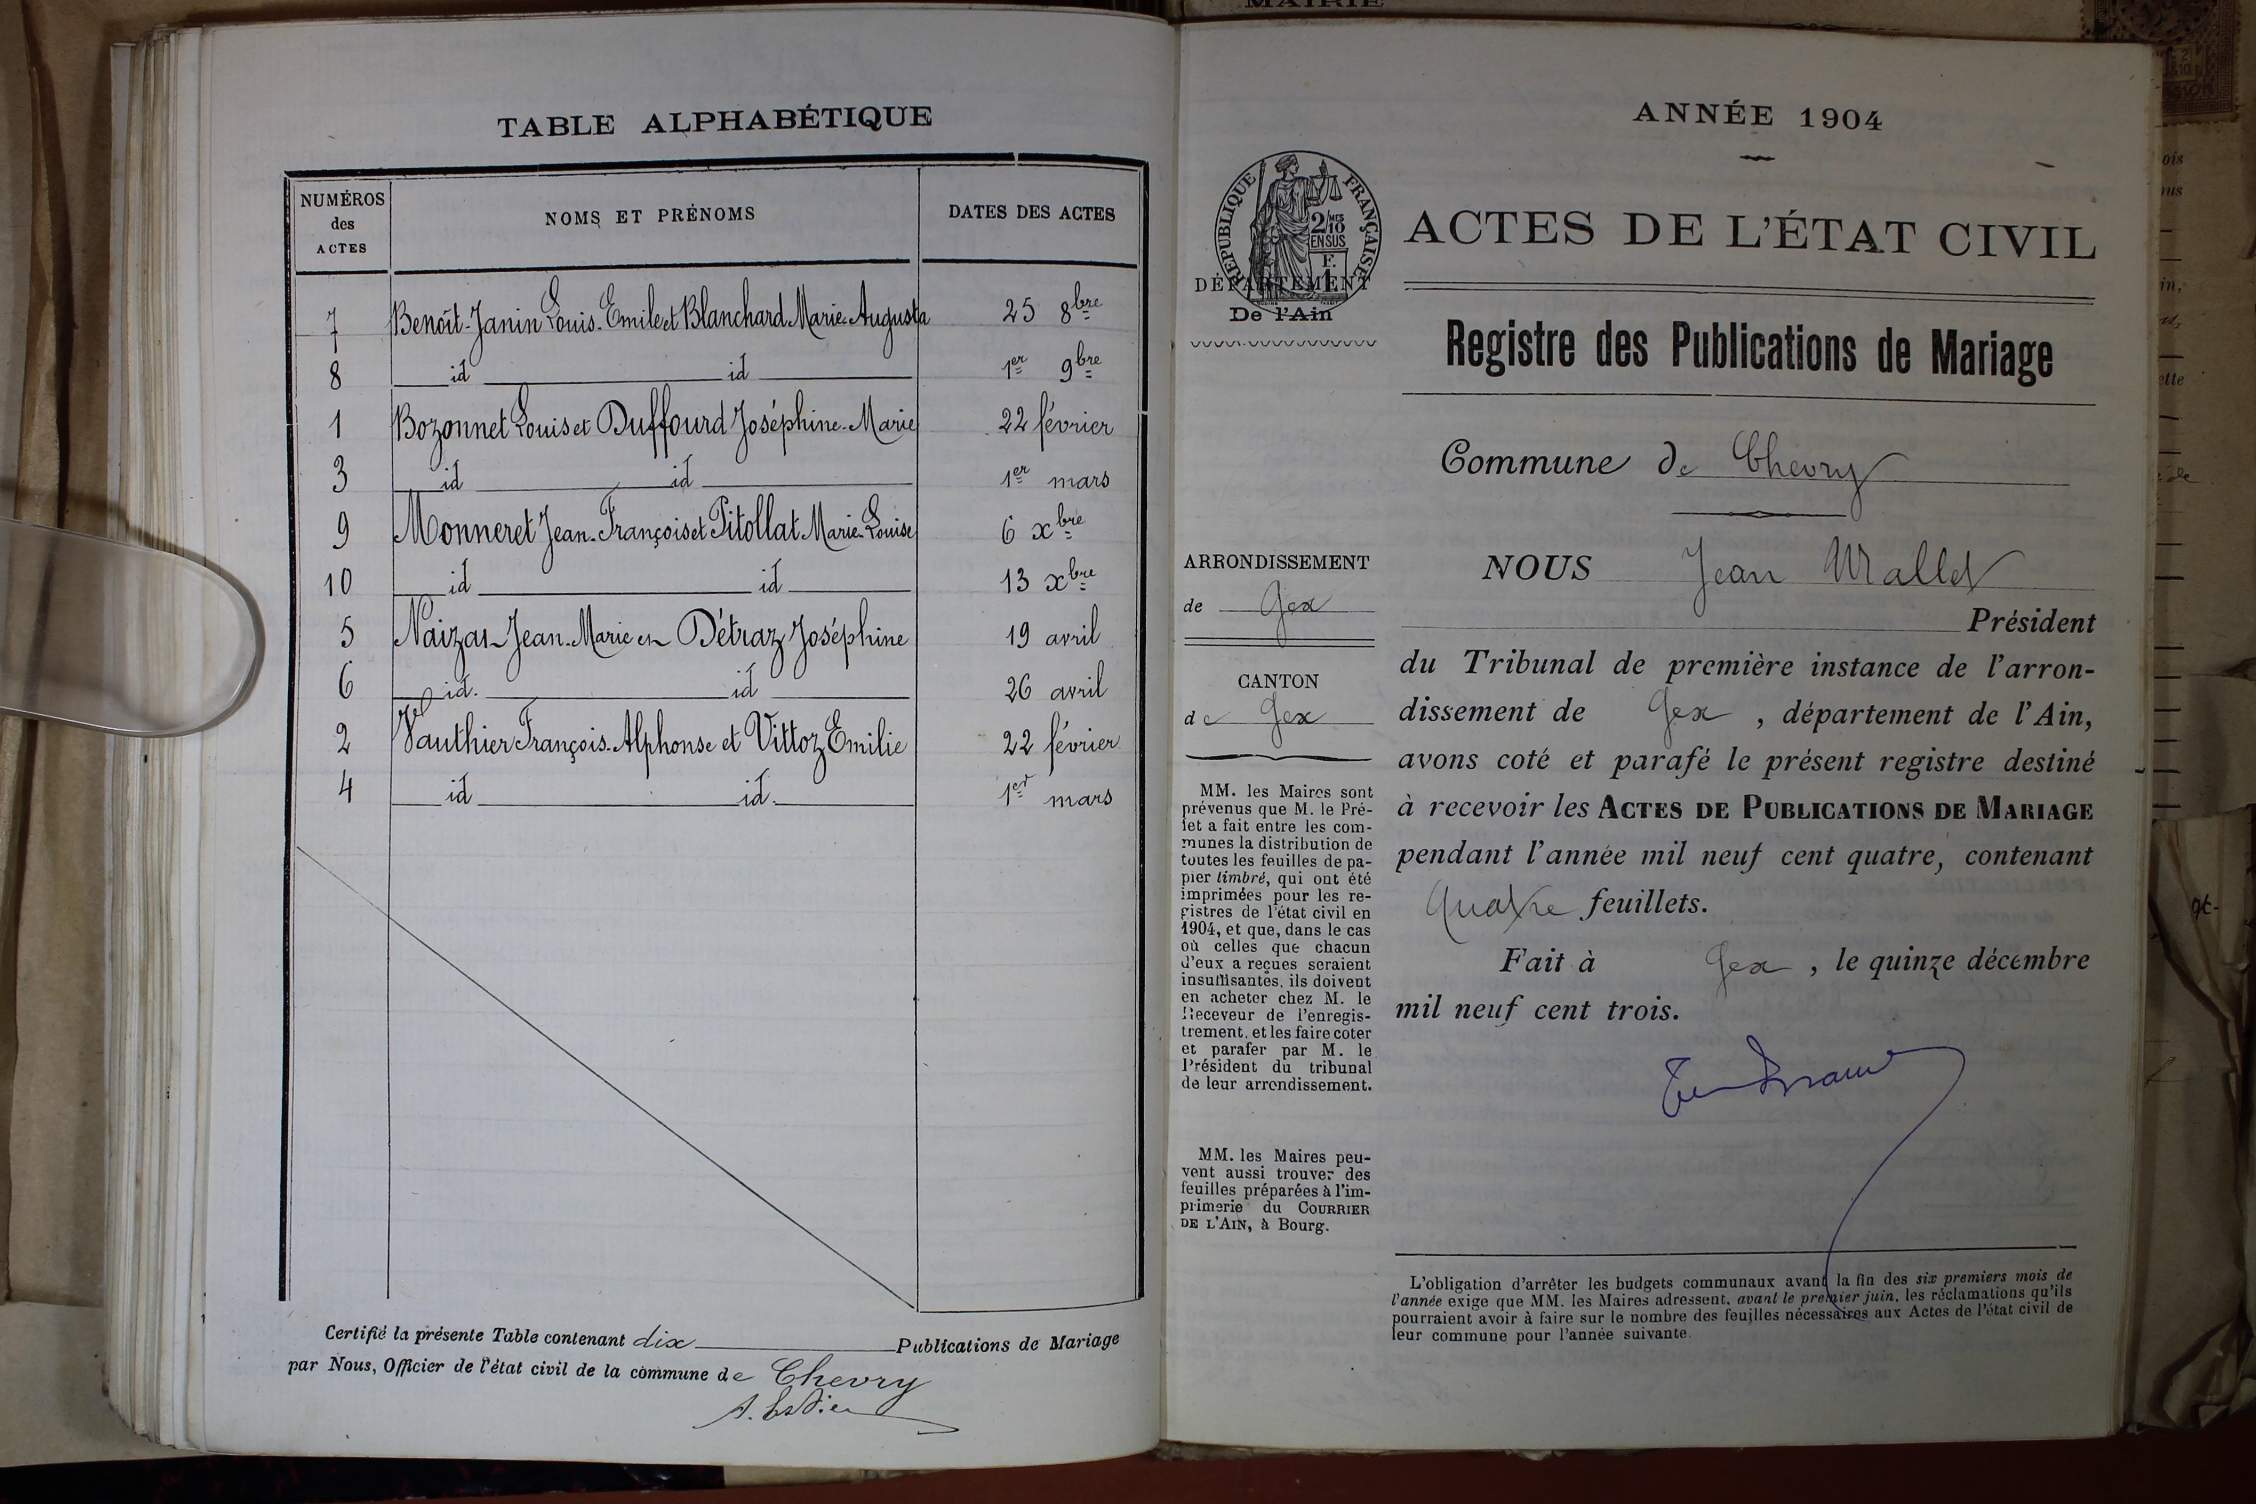 TABLE ALPHABÉTIQUE
NUMÉROS
des
ACTES
NOMS ET PRÉNOMS
DATES DES ACTES
7 Benoît-Janin Louis-Emile et Blanchard Marie-Augusta 25 8bre
8 id id 1er 9bre
1 Bozonnet Louis et Duffourd Joséphine-Marie 22 février
3 id id 1er mars
9 Monneret Jean-François et Pitollat Marie-Louise 6 xbre
10 id id 13 xbre
5 Jean-Marie et Détraz Joséphine 19 avril
6 id. id 26 avril
2 Vauthier François-Alphonse et Vittoz Emilie 22 février
4 id id. 1er mars
Certifié la présente Table contenant dix Publications de Mariage
par Nous, Officier de l'état civil de la commune de Chevry
MAIRIE
ANNÉE 1904
RÉPUBLIQUE FRANÇAISE
2/10
MES
EN SUS
F.
1
DÉPARTEMENT
De l'Ain
ACTES DE L'ÉTAT CIVIL
Registre des Publications de Mariage
Commune de Chevry
ARRONDISSEMENT
de Gex
CANTON
de Gex
MM. les Maires sont
prévenus que M. le Pré-
fet a fait entre les com-
munes la distribution de
toutes les feuilles de pa-
pier timbré, qui ont été
imprimées pour les re-
gistres de l'état civil en
1904, et que, dans le cas
où celles que chacun
d'eux a reçues seraient
insuffisantes, ils doivent
en acheter chez M. le
Receveur de l'enregis-
trement, et les faire coter
et parafer par M. le
Président du tribunal
de leur arrondissement.
MM. les Maires peu-
vent aussi trouver des
feuilles préparées à l'im-
primerie du COURRIER
DE L'AIN, à Bourg.
NOUS Jean Mallet
Président
du Tribunal de première instance de l'arron-
dissement de Gex, département de l'Ain,
avons coté et parafé le présent registre destiné
à recevoir les ACTES DE PUBLICATIONS DE MARIAGE
pendant l'année mil neuf cent quatre, contenant
quatre feuillets.
Fait à Gex, le quinze décembre
mil neuf cent trois.
L'obligation d'arrêter les budgets communaux avant la fin des six premiers mois de
l'année exige que MM. les Maires adressent, avant le premier juin, les réclamations qu'ils
pourraient avoir à faire sur le nombre des feuilles nécessaires aux Actes de l'état civil de
leur commune pour l'année suivante.